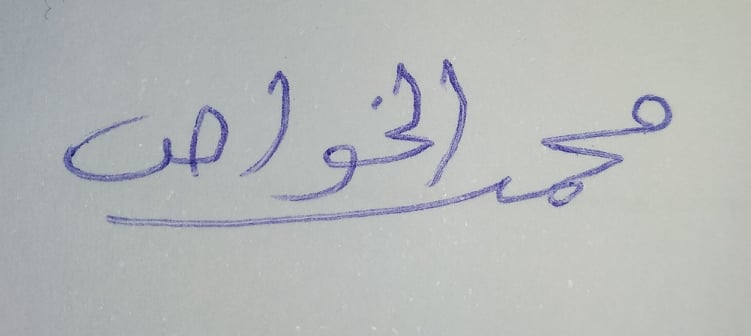 محمد الخواص